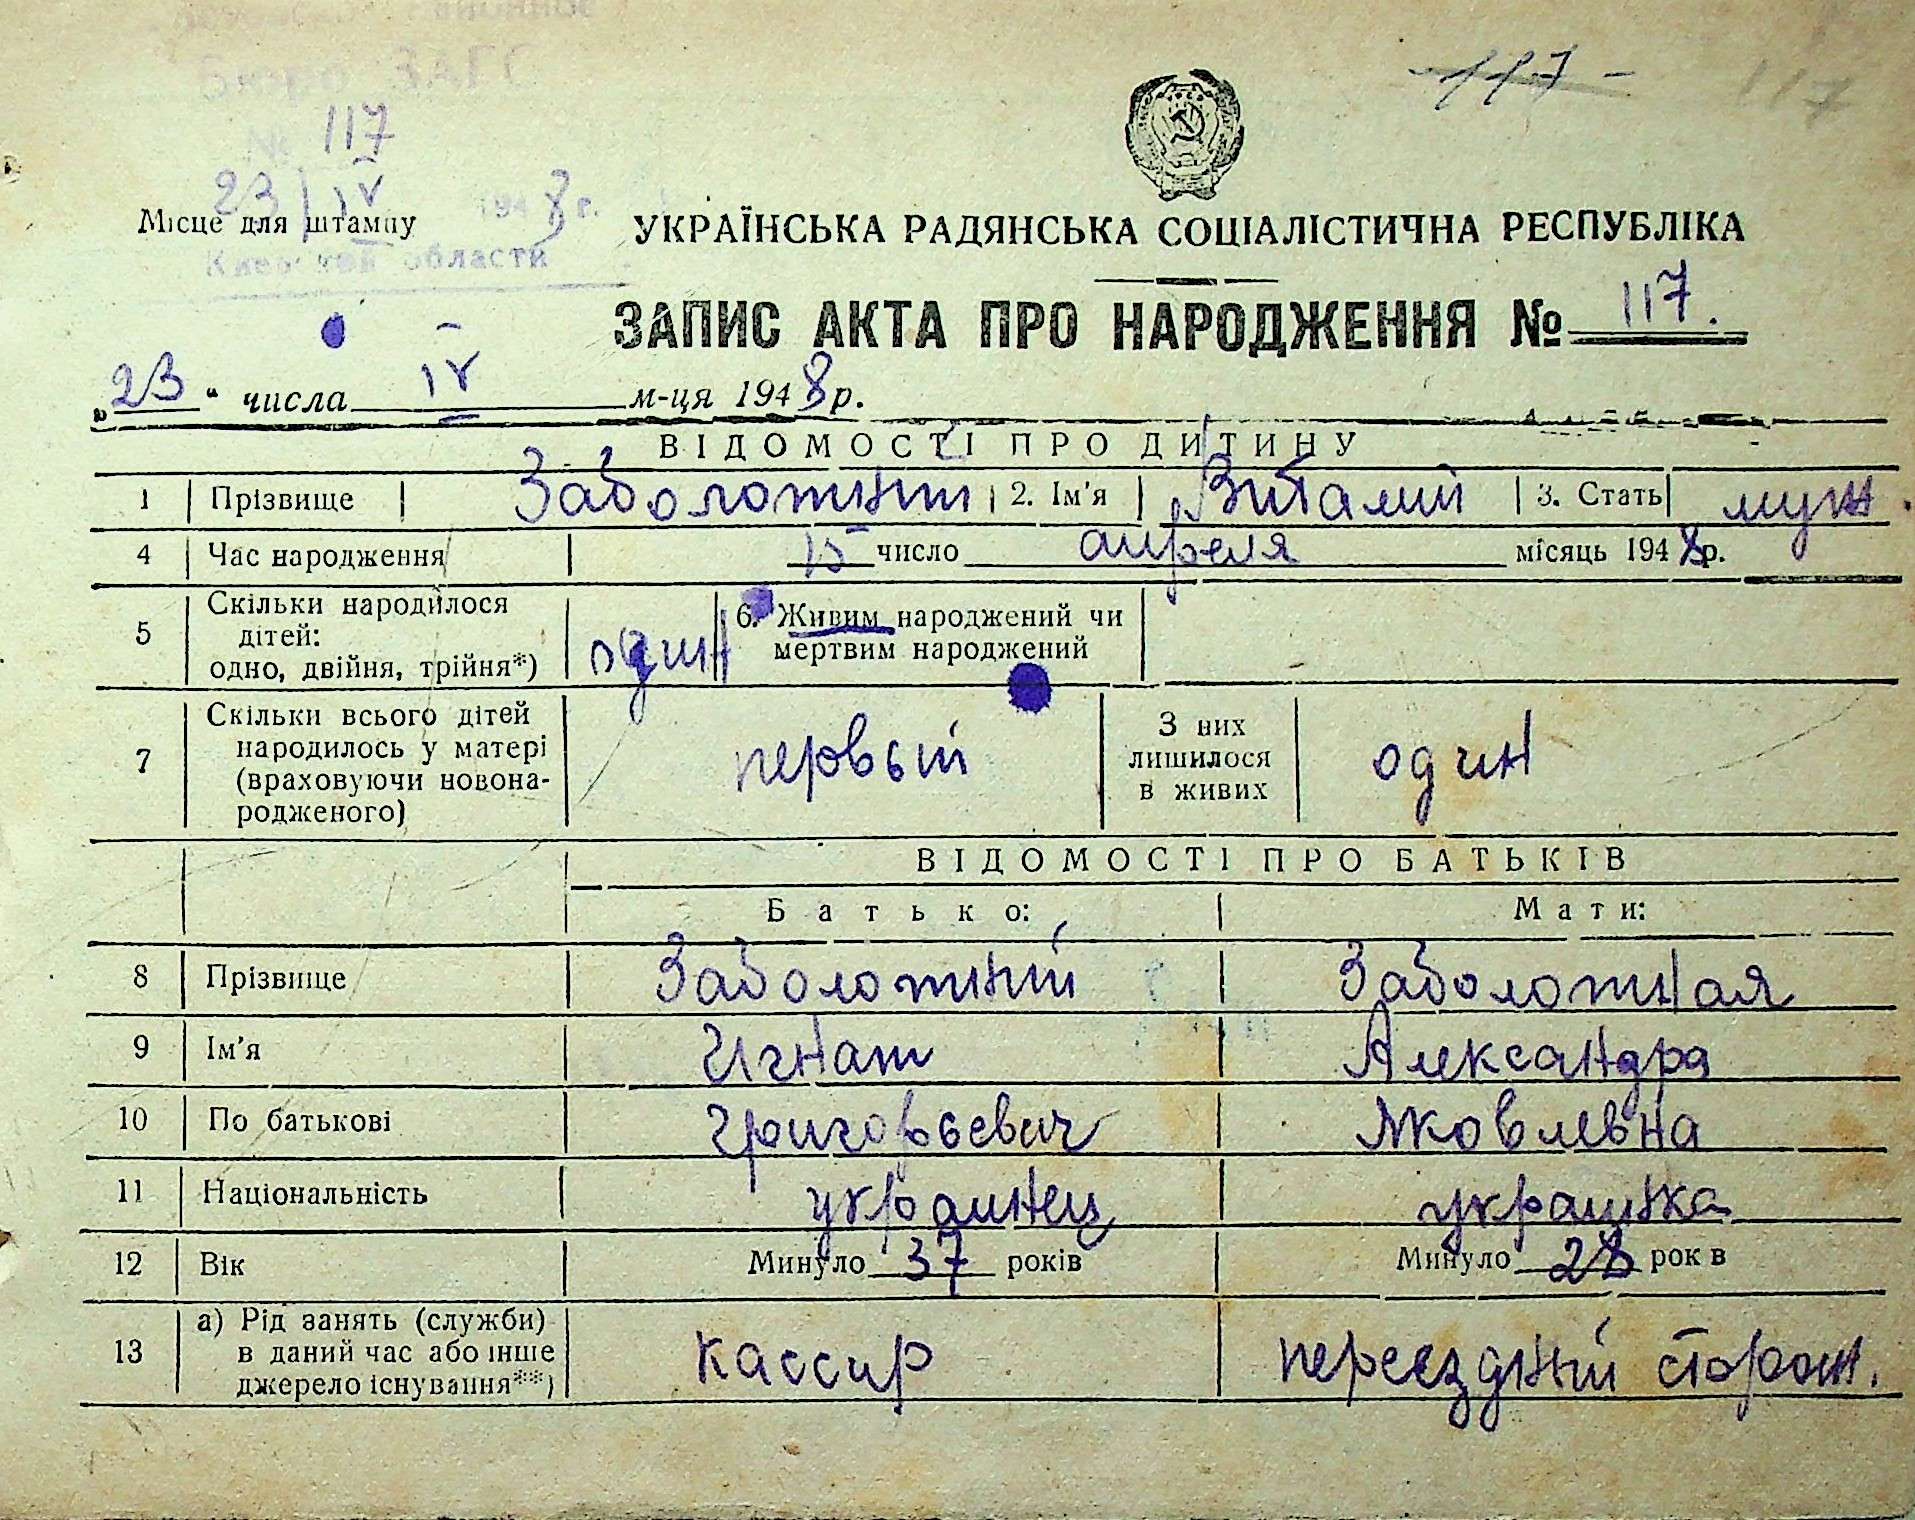 районное
Бюро ЗАГС
- 117 -
117
№ 117
23/IV 1948 г.
Місце для штампу
Киевской области
УКРАЇНСЬКА РАДЯНСЬКА СОЦІАЛІСТИЧНА РЕСПУБЛІКА
ЗАПИС АКТА ПРО НАРОДЖЕННЯ № 117.
„23“ числа IV м-ця 1948 р.
ВІДОМОСТІ ПРО ДИТИНУ
1 Прізвище Заболотний 2. Ім'я Виталий 3. Стать муж.
4 Час народження 15 число апреля місяць 1948 р.
5 Скільки народилося дітей: одно, двійня, трійня*) один 6. Живим народжений чи мертвим народжений
7 Скільки всього дітей народилось у матері (враховуючи новонародженого) первый З них лишилося в живих один
ВІДОМОСТІ ПРО БАТЬКІВ
Батько: Мати:
8 Прізвище Заболотний Заболотная
9 Ім'я Игнат Александра
10 По батькові Григорьевич Яковлевна
11 Національність украинец украинка
12 Вік Минуло 37 років Минуло 28 рок в
13 а) Рід занять (служби) в даний час або інше джерело існування**) кассир переездний сторож.